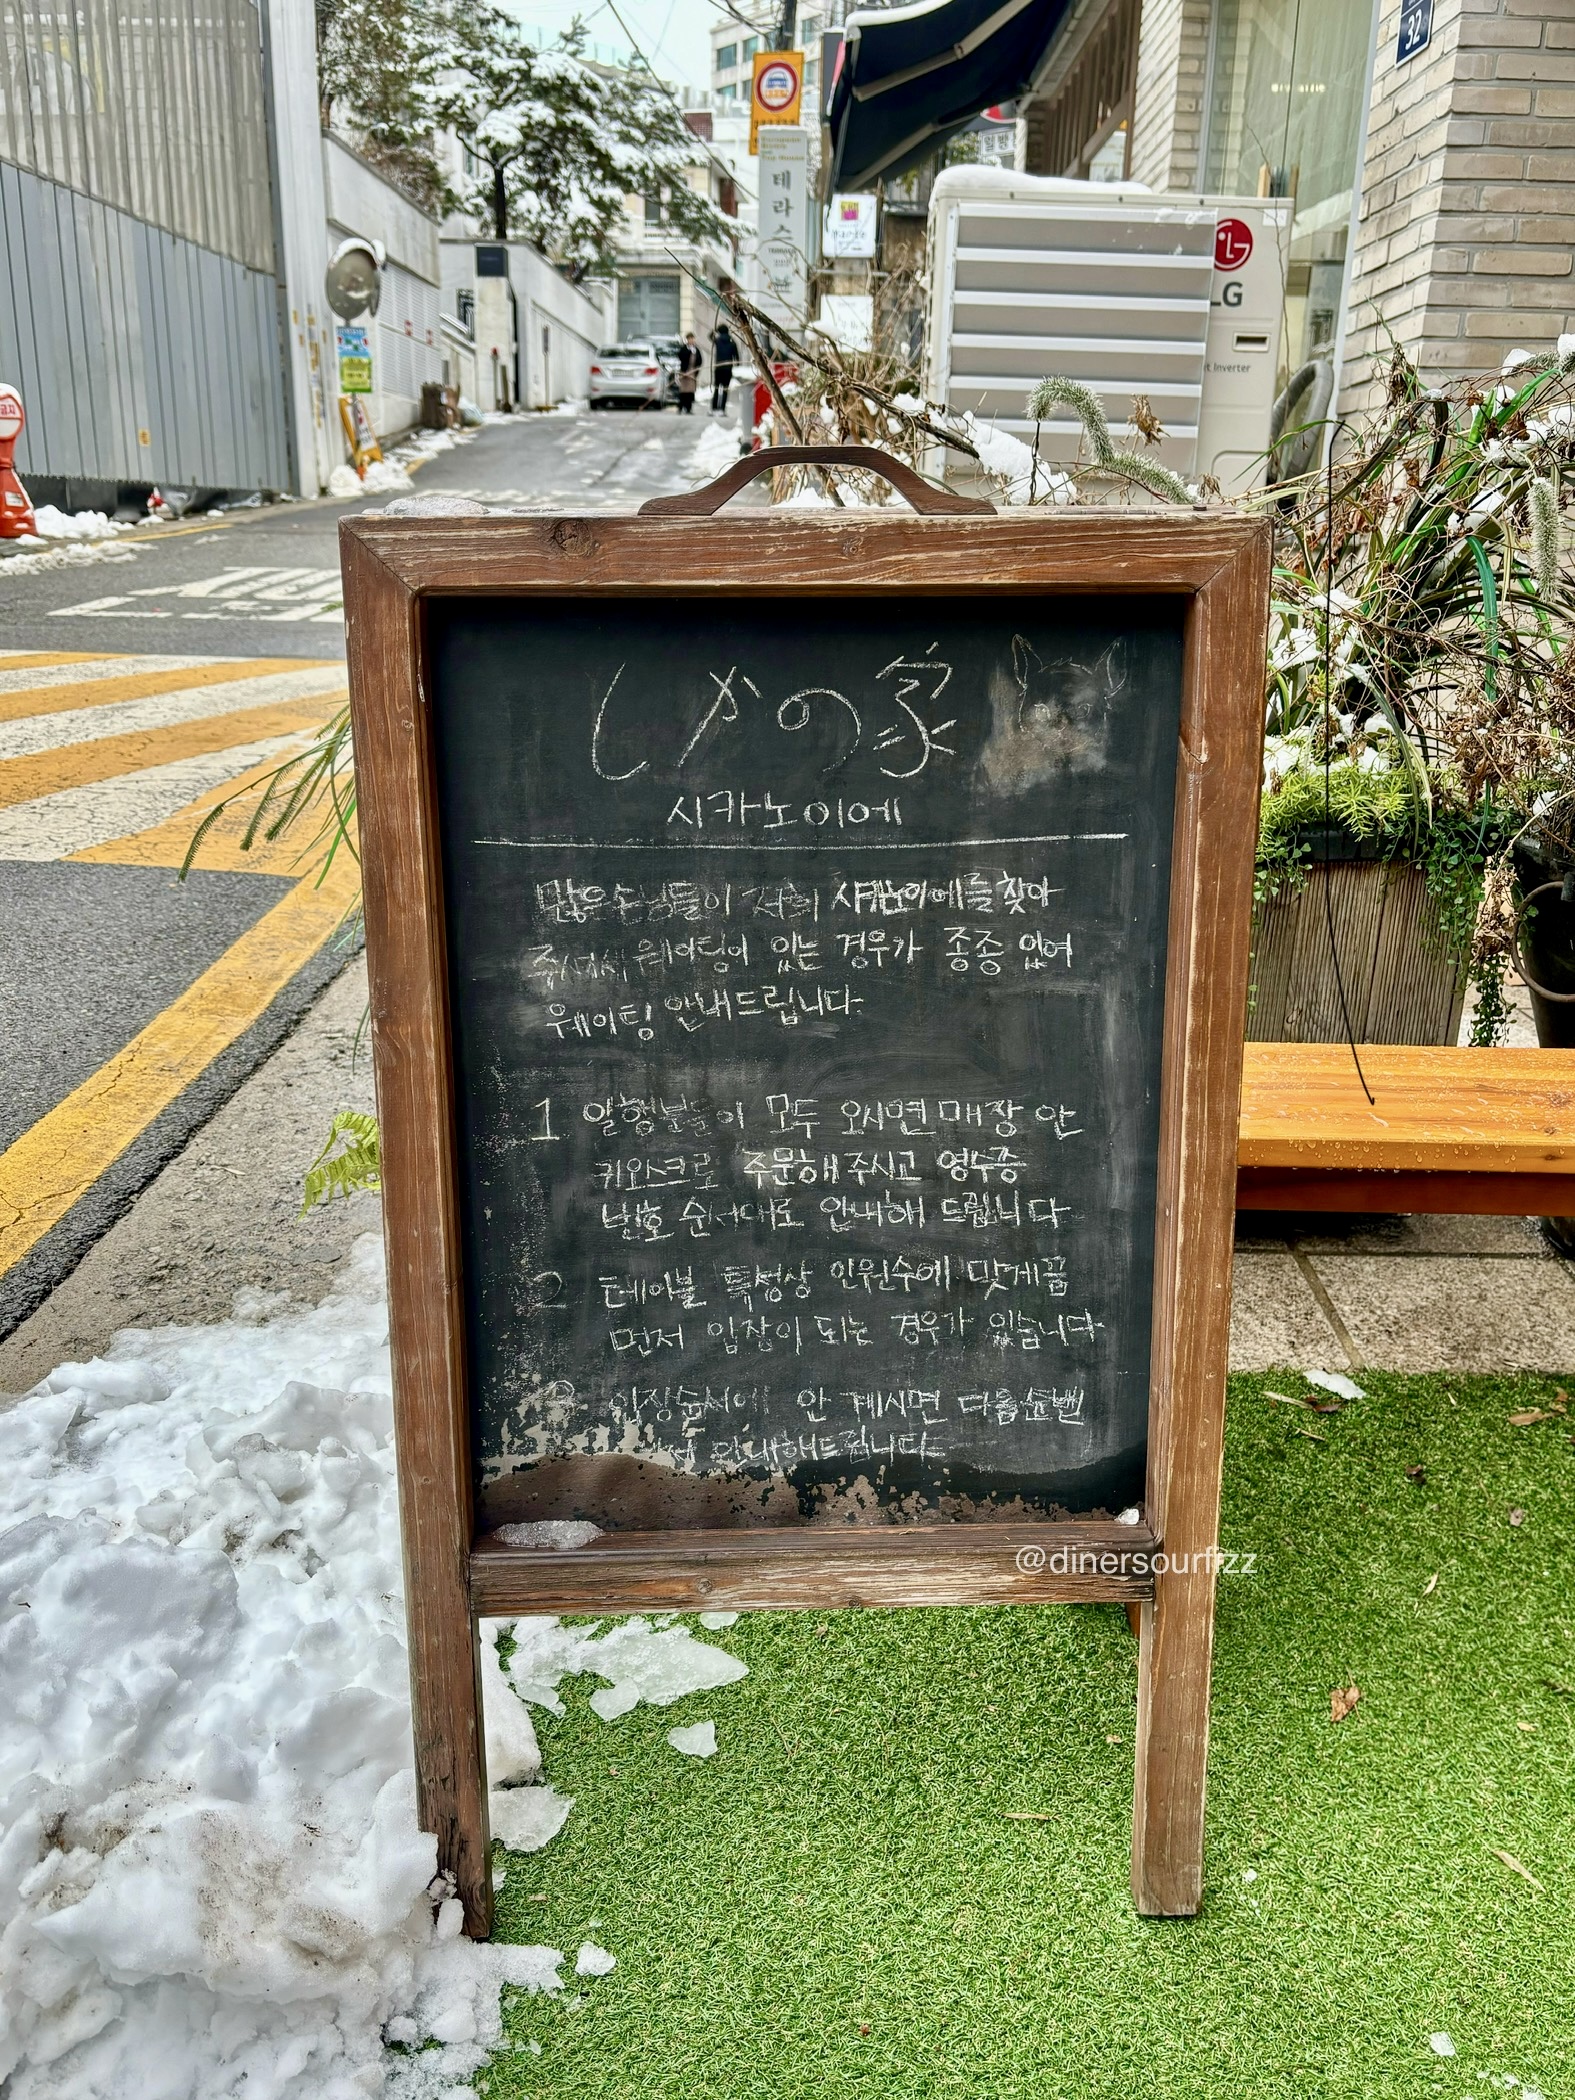 32
테라스
LG
Inverter
しかの家
시카노이에
많은 손님들이 저희 시카노이에를 찾아
주셔서 웨이팅이 있는 경우가 종종 있어
웨이팅 안내드립니다.
1 일행분들이 모두 오시면 매장 안
키오스크로 주문해 주시고 영수증
번호 순서대로 안내해 드립니다
2 테이블 특성상 인원수에 맞게끔
먼저 입장이 되는 경우가 있습니다
입장순서에 안 계시면 다음순번
안내해드립니다
@dinersourfizz